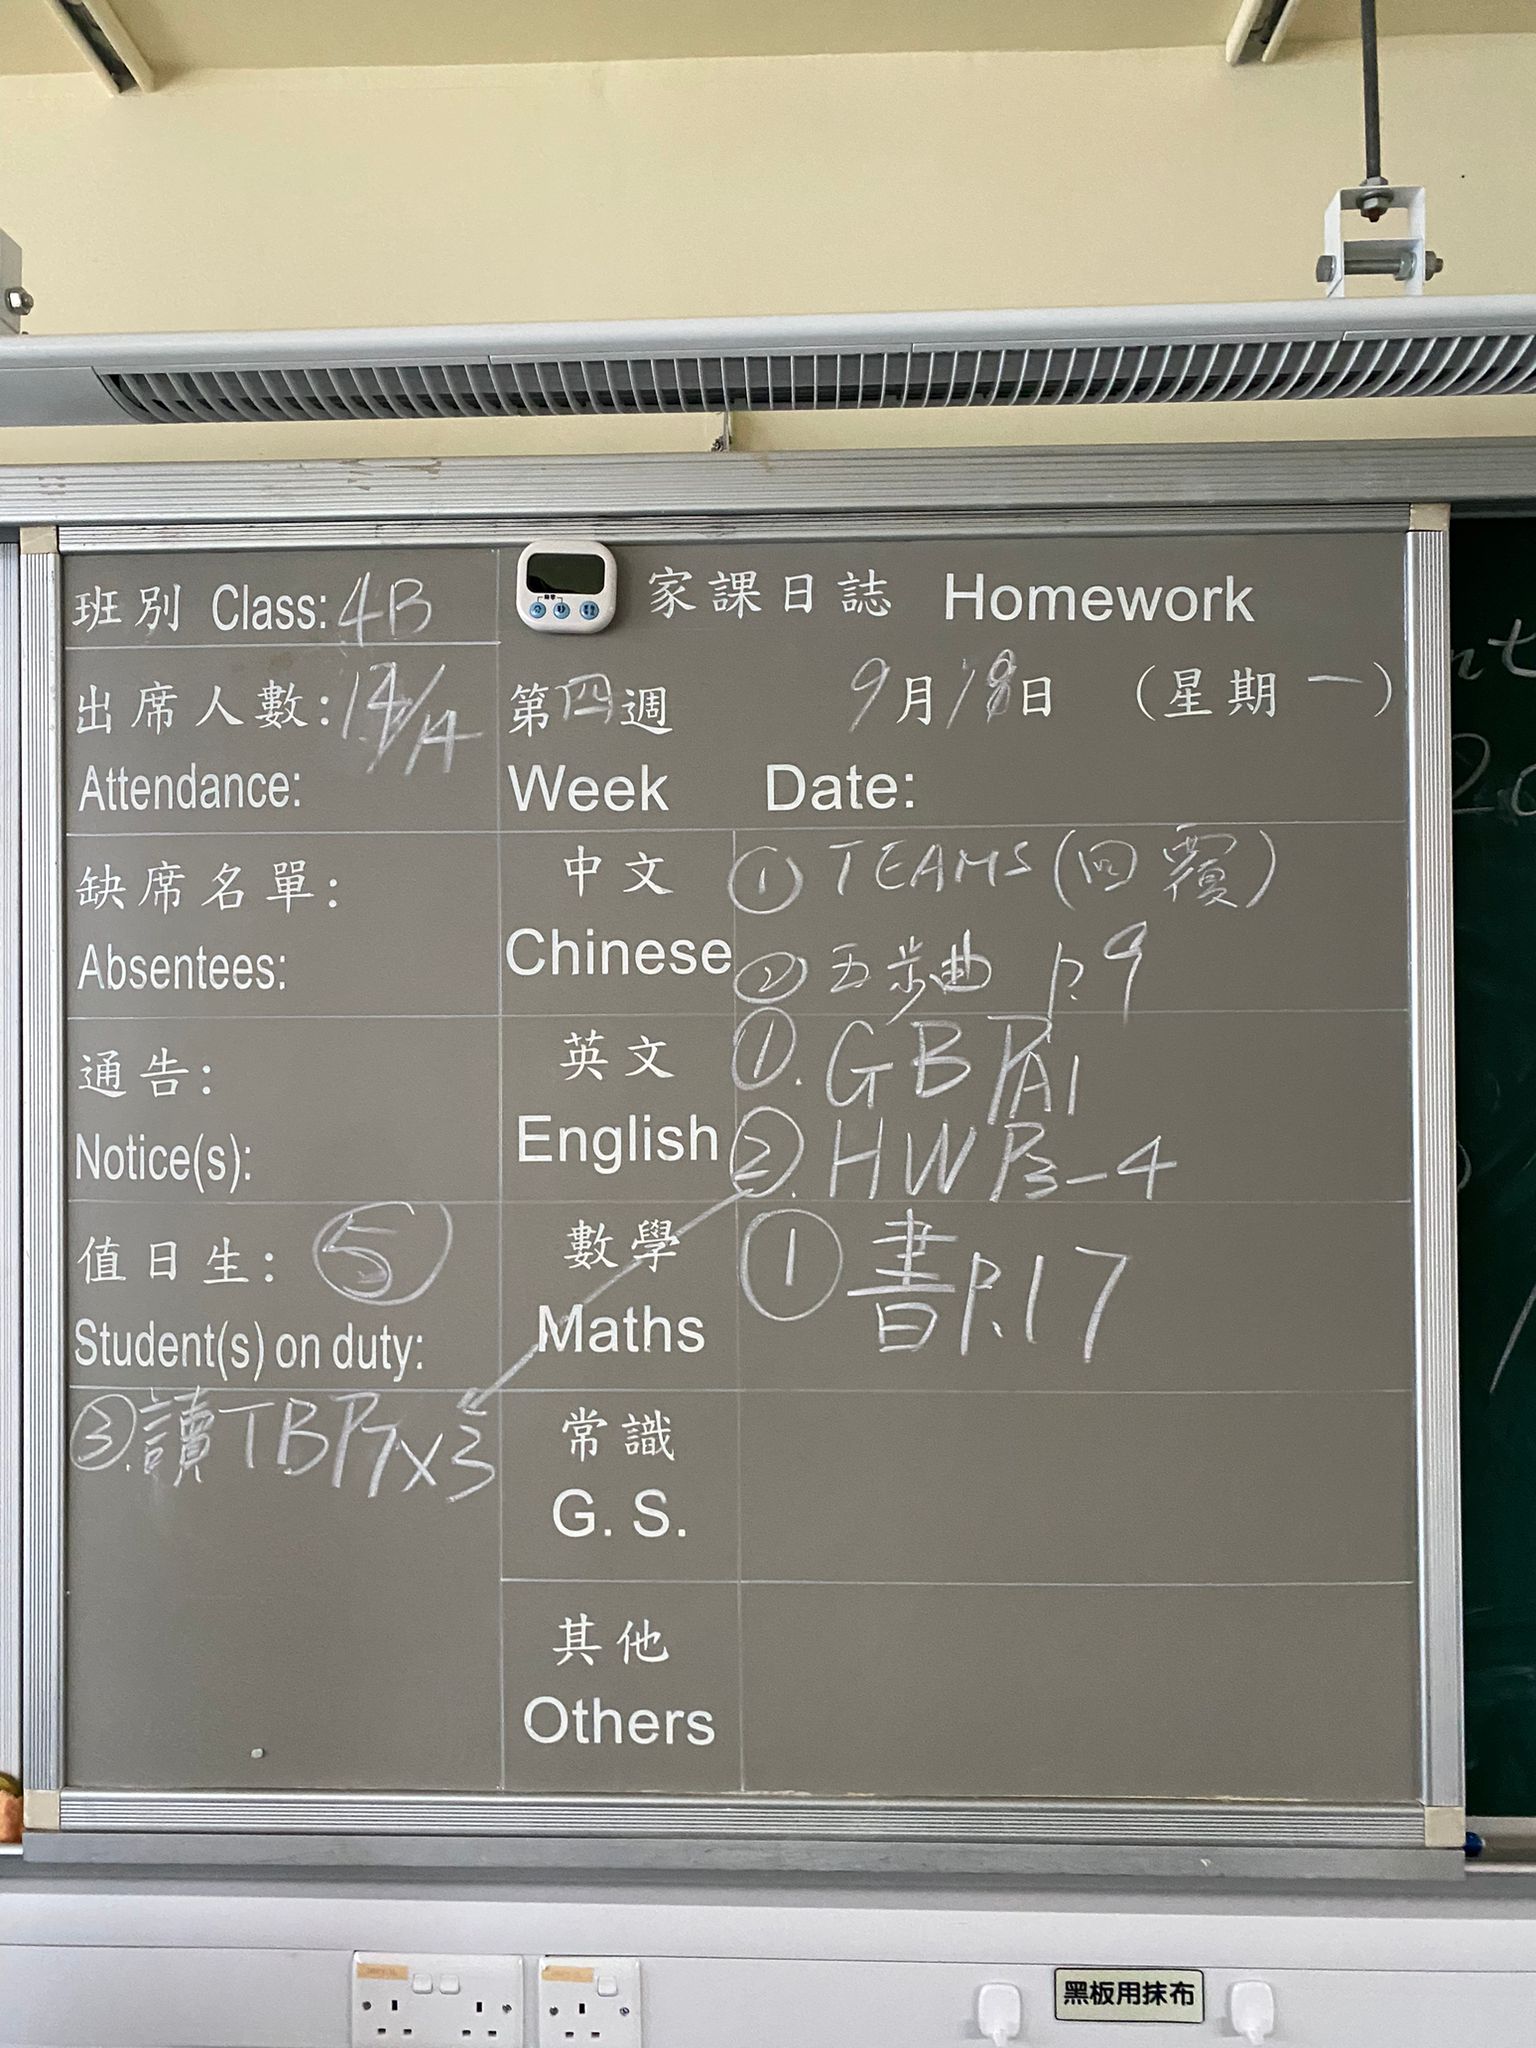 班別 Class: 4B
出席人數: 14/14
Attendance:
缺席名單:
Absentees:
通告:
Notice(s):
值日生: ⑤
Student(s) on duty:
③.讀TBP7x3
家課日誌 Homework
第四週 9月18日 (星期一)
Week Date:
中文
Chinese
① TEAMS(回覆)
② 五步曲 p.9
英文
English
①. GB PA1
②. HW P3-4
數學
Maths
① 書P.17
常識
G. S.
其他
Others
黑板用抹布